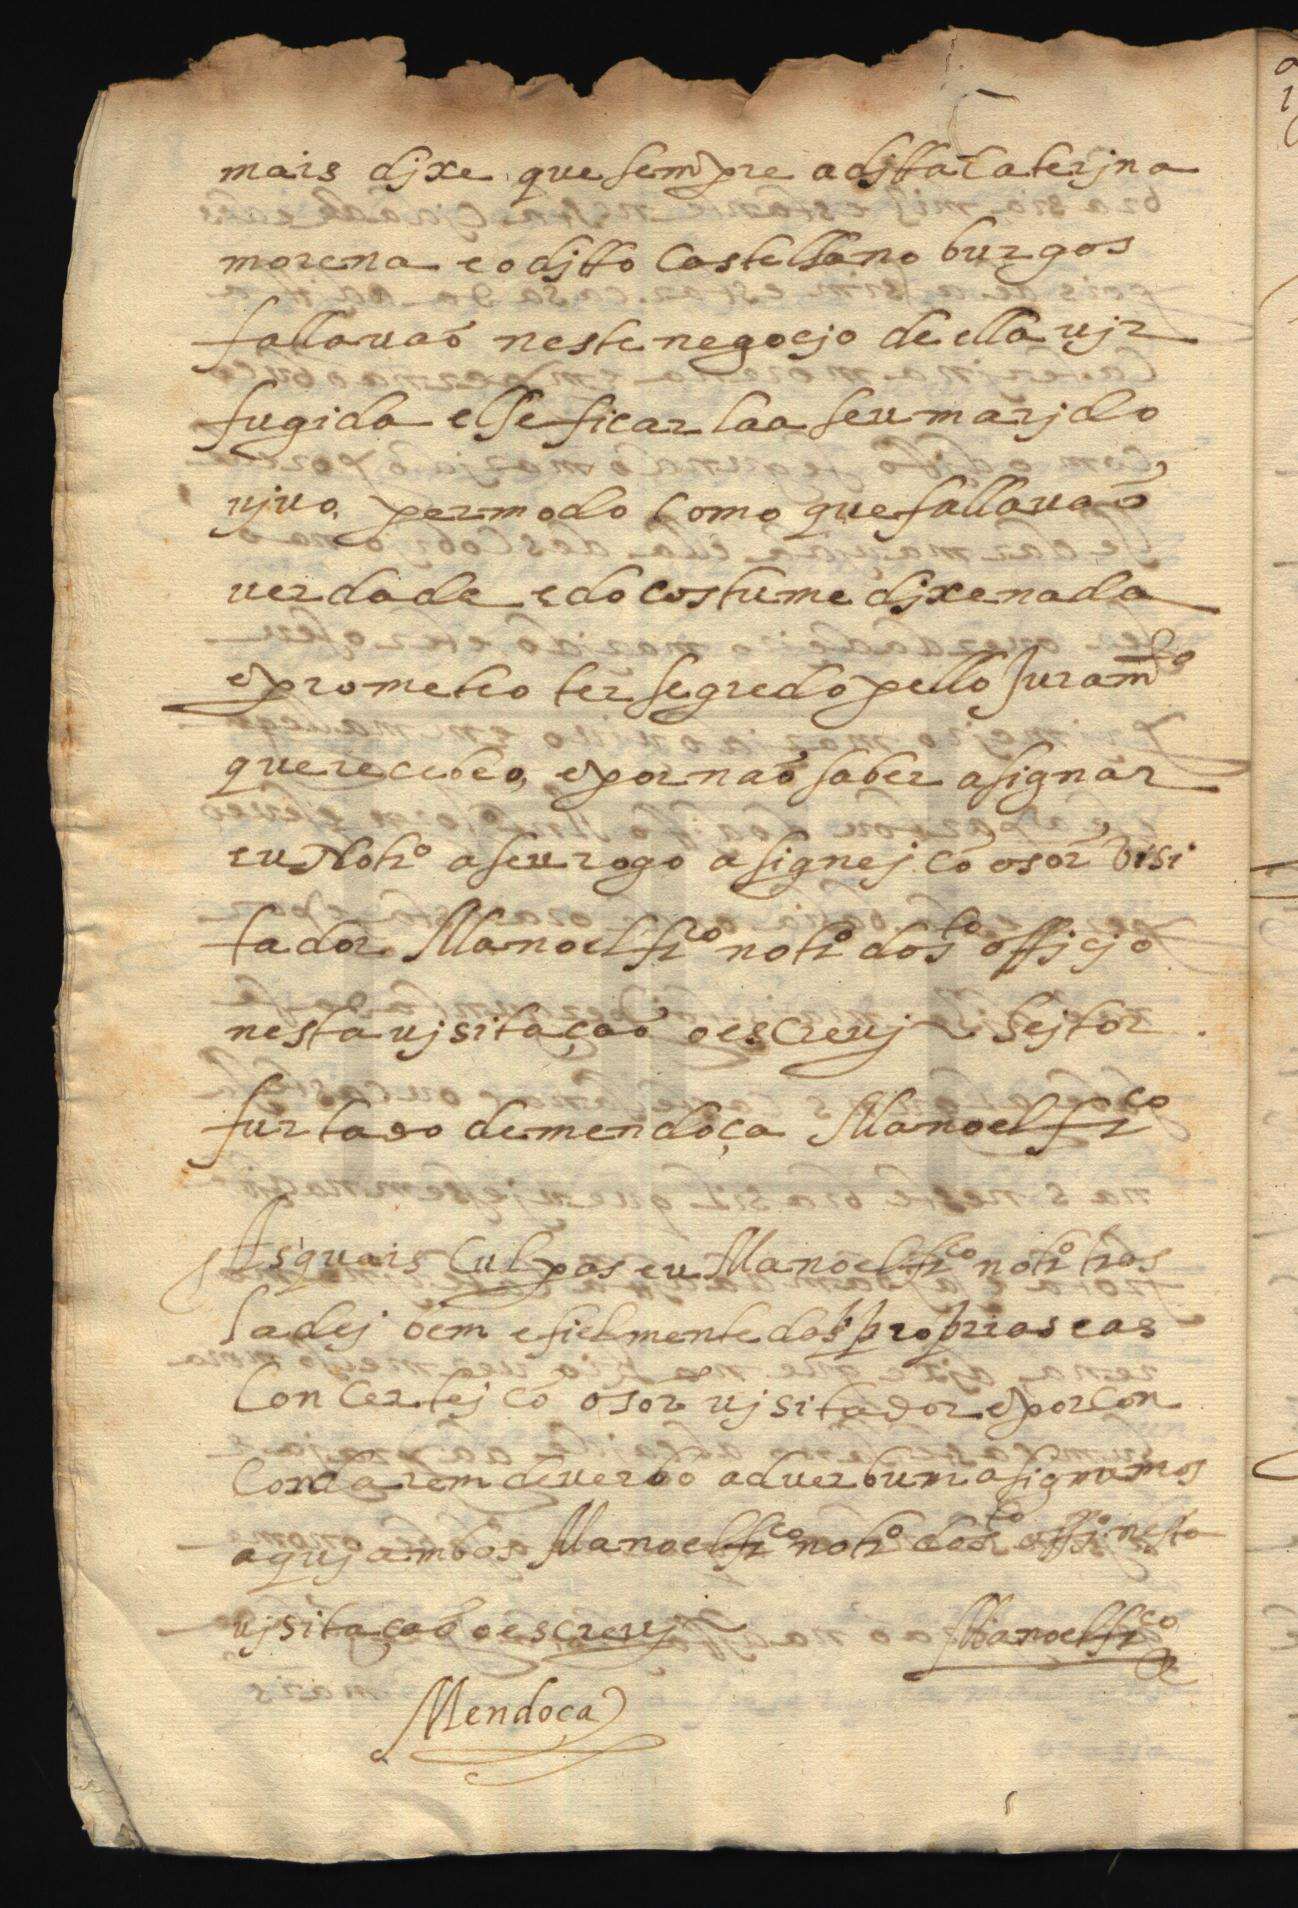 mais djxe que sempre a djtta Caterjna
morena e o djtto Castelhano burgos
fallavaõ neste negocjo de ella vjr
fugida e lhe ficar laa seu marjdo
vjvo, per modo como que fallavaõ
verdade e do costume djxe nada
e prometeo ter segredo pello Juramto
que recebeo, e por naõ saber asignar
eu Notro a seu rogo asignej cõ o sor visi
tador Manoel frco notro do sto officjo
nesta vjsitaçaõ o escrevj hejtor
furtado de mendoça Manoel frco
As quais Culpas eu Manoel frco notro tras
ladej bem e fielmente das proprias e as
Concertej cõ o sor vjsitador e por con
Cordarem de verbo ad verbum asignamos
aquj ambos Manoel frco notro do sto offo nesta
vjsitaçaõ o escrevj
Manoel frco
Mendoça